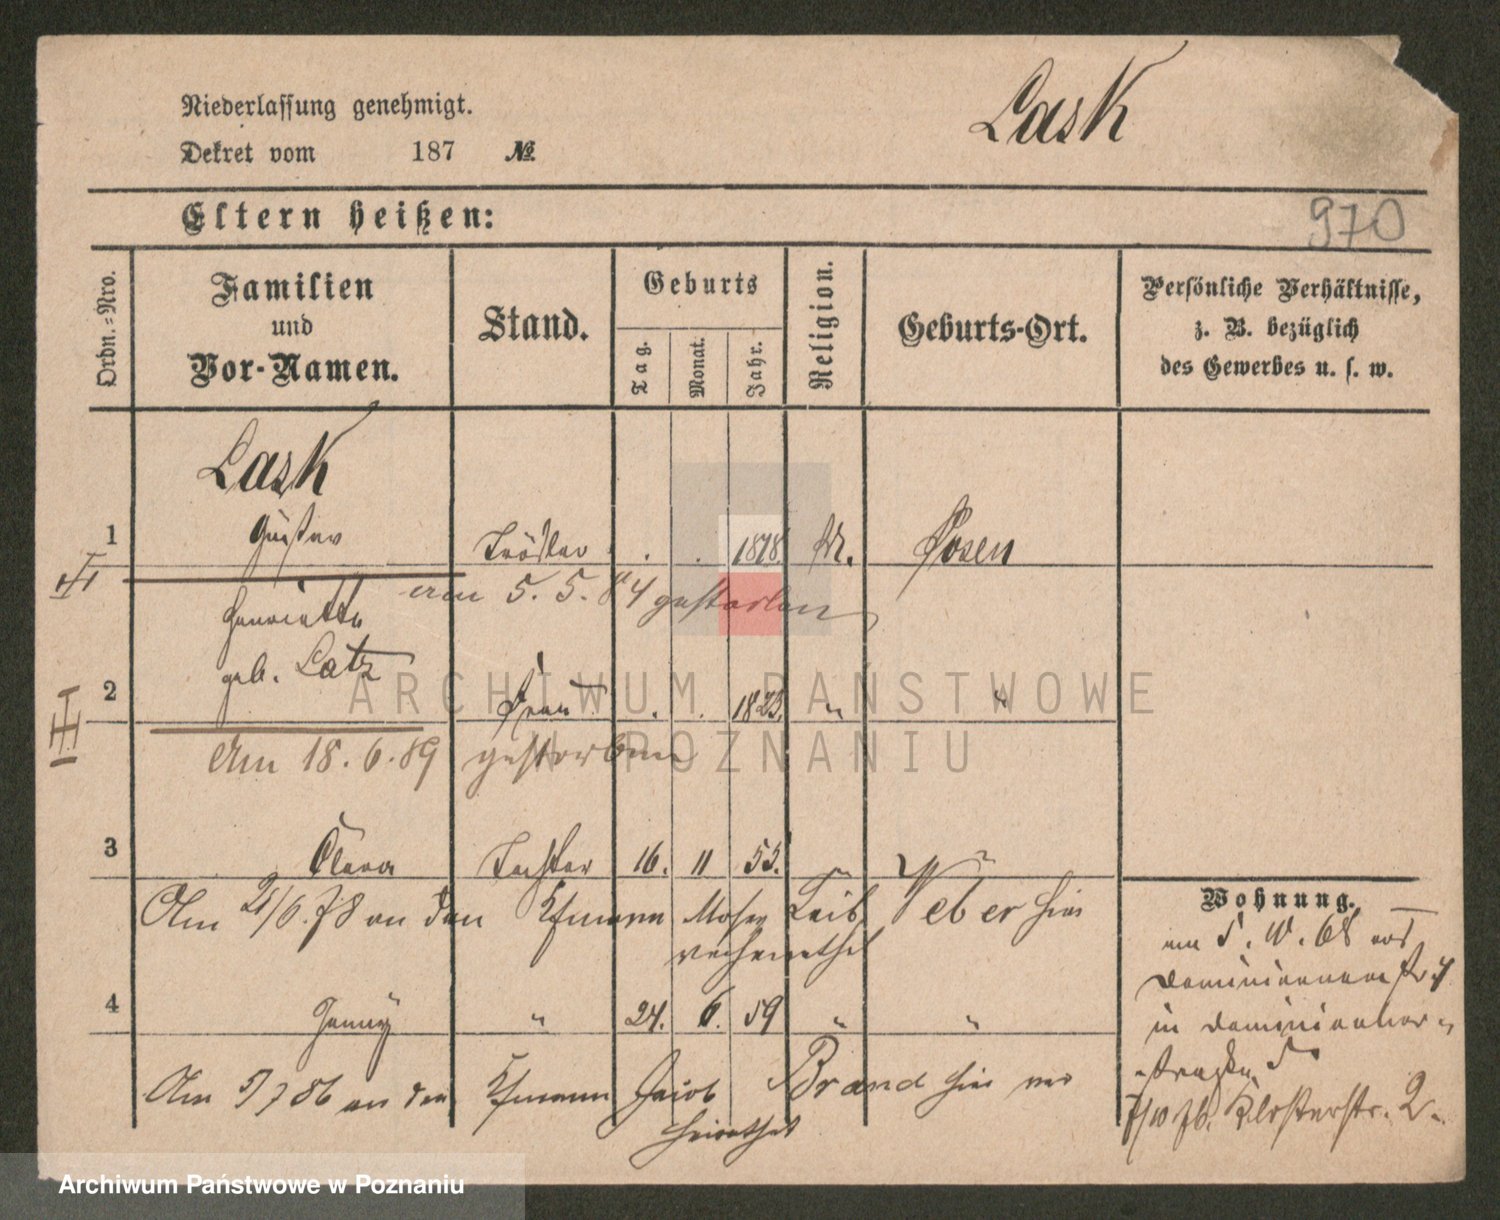 Niederlassung genehmigt.
Lask
Dekret vom 187 №
Eltern heißen:
970
Ordn.=Nro.
Familien
und
Vor-Namen.
Stand.
Geburts
Tag.
Monat.
Jahr.
Religion.
Geburts-Ort.
Persönliche Verhältnisse,
z. B. bezüglich
des Gewerbes u. s. w.
Lask
1 Gustav Trödler . . 1818. M. Posen
am 5. 5. 84 gestorben
Henriette
geb. Latz
2 Frau . . 1823. " "
Am 18. 6. 89 gestorben
3 Clara Tochter 16. 11 55. " "
Am 21/6. 78 an den Kfmann Moses Leib Weber hier
verheirathet
4 Jenny " 24. 6. 59 " "
Am 5/7 86 an den Kfmann Jacob Brand hier ver
heirathet
Wohnung.
am 5. 10. 68 aus
Dominicanerstr 4
in Dominicaner-
straße 5
7/10 76. Klosterstr. 2.
ARCHIWUM PAŃSTWOWE
W POZNANIU
Archiwum Państwowe w Poznaniu